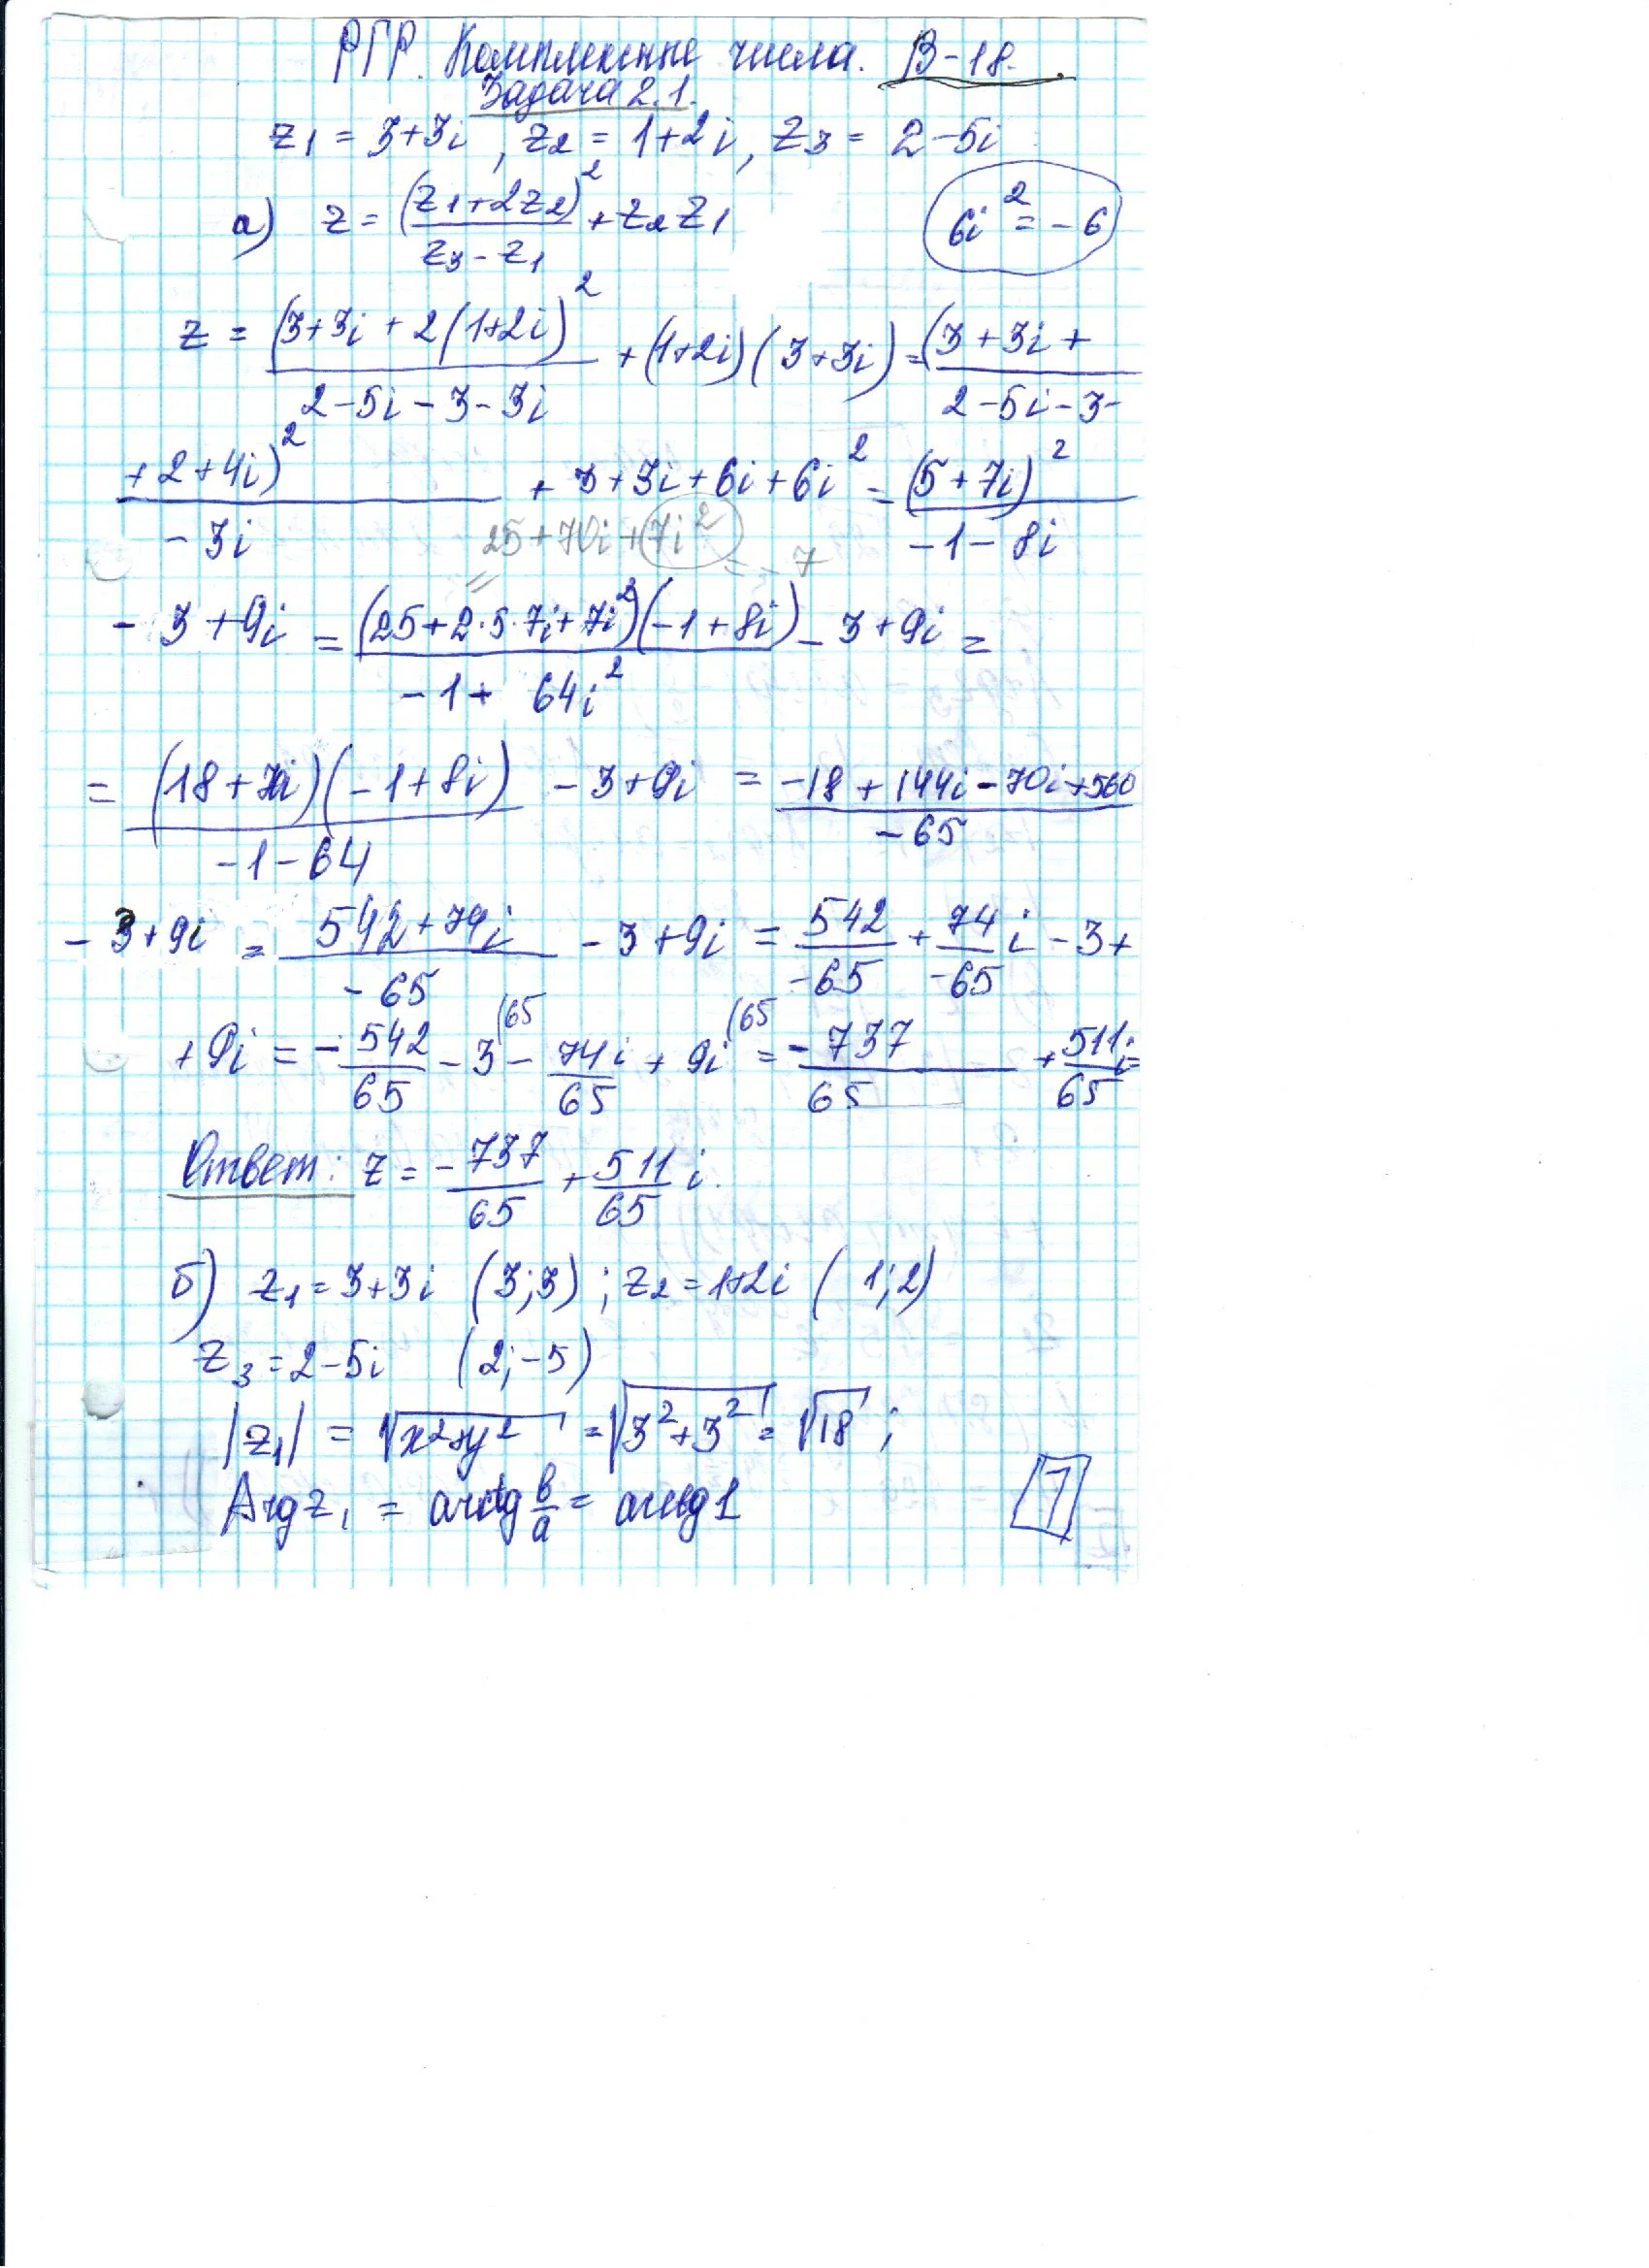 РГР. Комплексные числа. В-18.
Задача 2.1.
z1 = 3+3i, z2 = 1+2i, z3 = 2-5i
а) z = (z1+2z2)²/(z3-z1) + z2 z1
6i² = -6
z = (3+3i+2(1+2i)²/(2-5i-3-3i) + (1+2i)(3+3i) = (3+3i+/(2-5i-3-
+2+4i)²/(-3i) + 3+3i+6i+6i² = (5+7i)²/(-1-8i)
25+70i+7i² = -7
-3+9i = (25+2·5·7i+7i²)(-1+8i)/(-1+64i²) -3+9i =
= (18+70i)(-1+8i)/(-1-64) -3+9i = (-18+144i-70i+560)/(-65)
-3+9i = (542+74i)/(-65) -3+9i = 542/(-65) + 74/(-65) i -3+
+9i = -542/65 -3(65 -74i/65 +9i(65 = -737/65 + 511i/65 =
Ответ: z = -737/65 + 511/65 i.
б) z1=3+3i (3;3); z2=1+2i (1;2)
z3=2-5i (2;-5)
|z1| = √(x²+y²) = √(3²+3²) = √18;
Arg z1 = arctg b/a = arctg 1
1